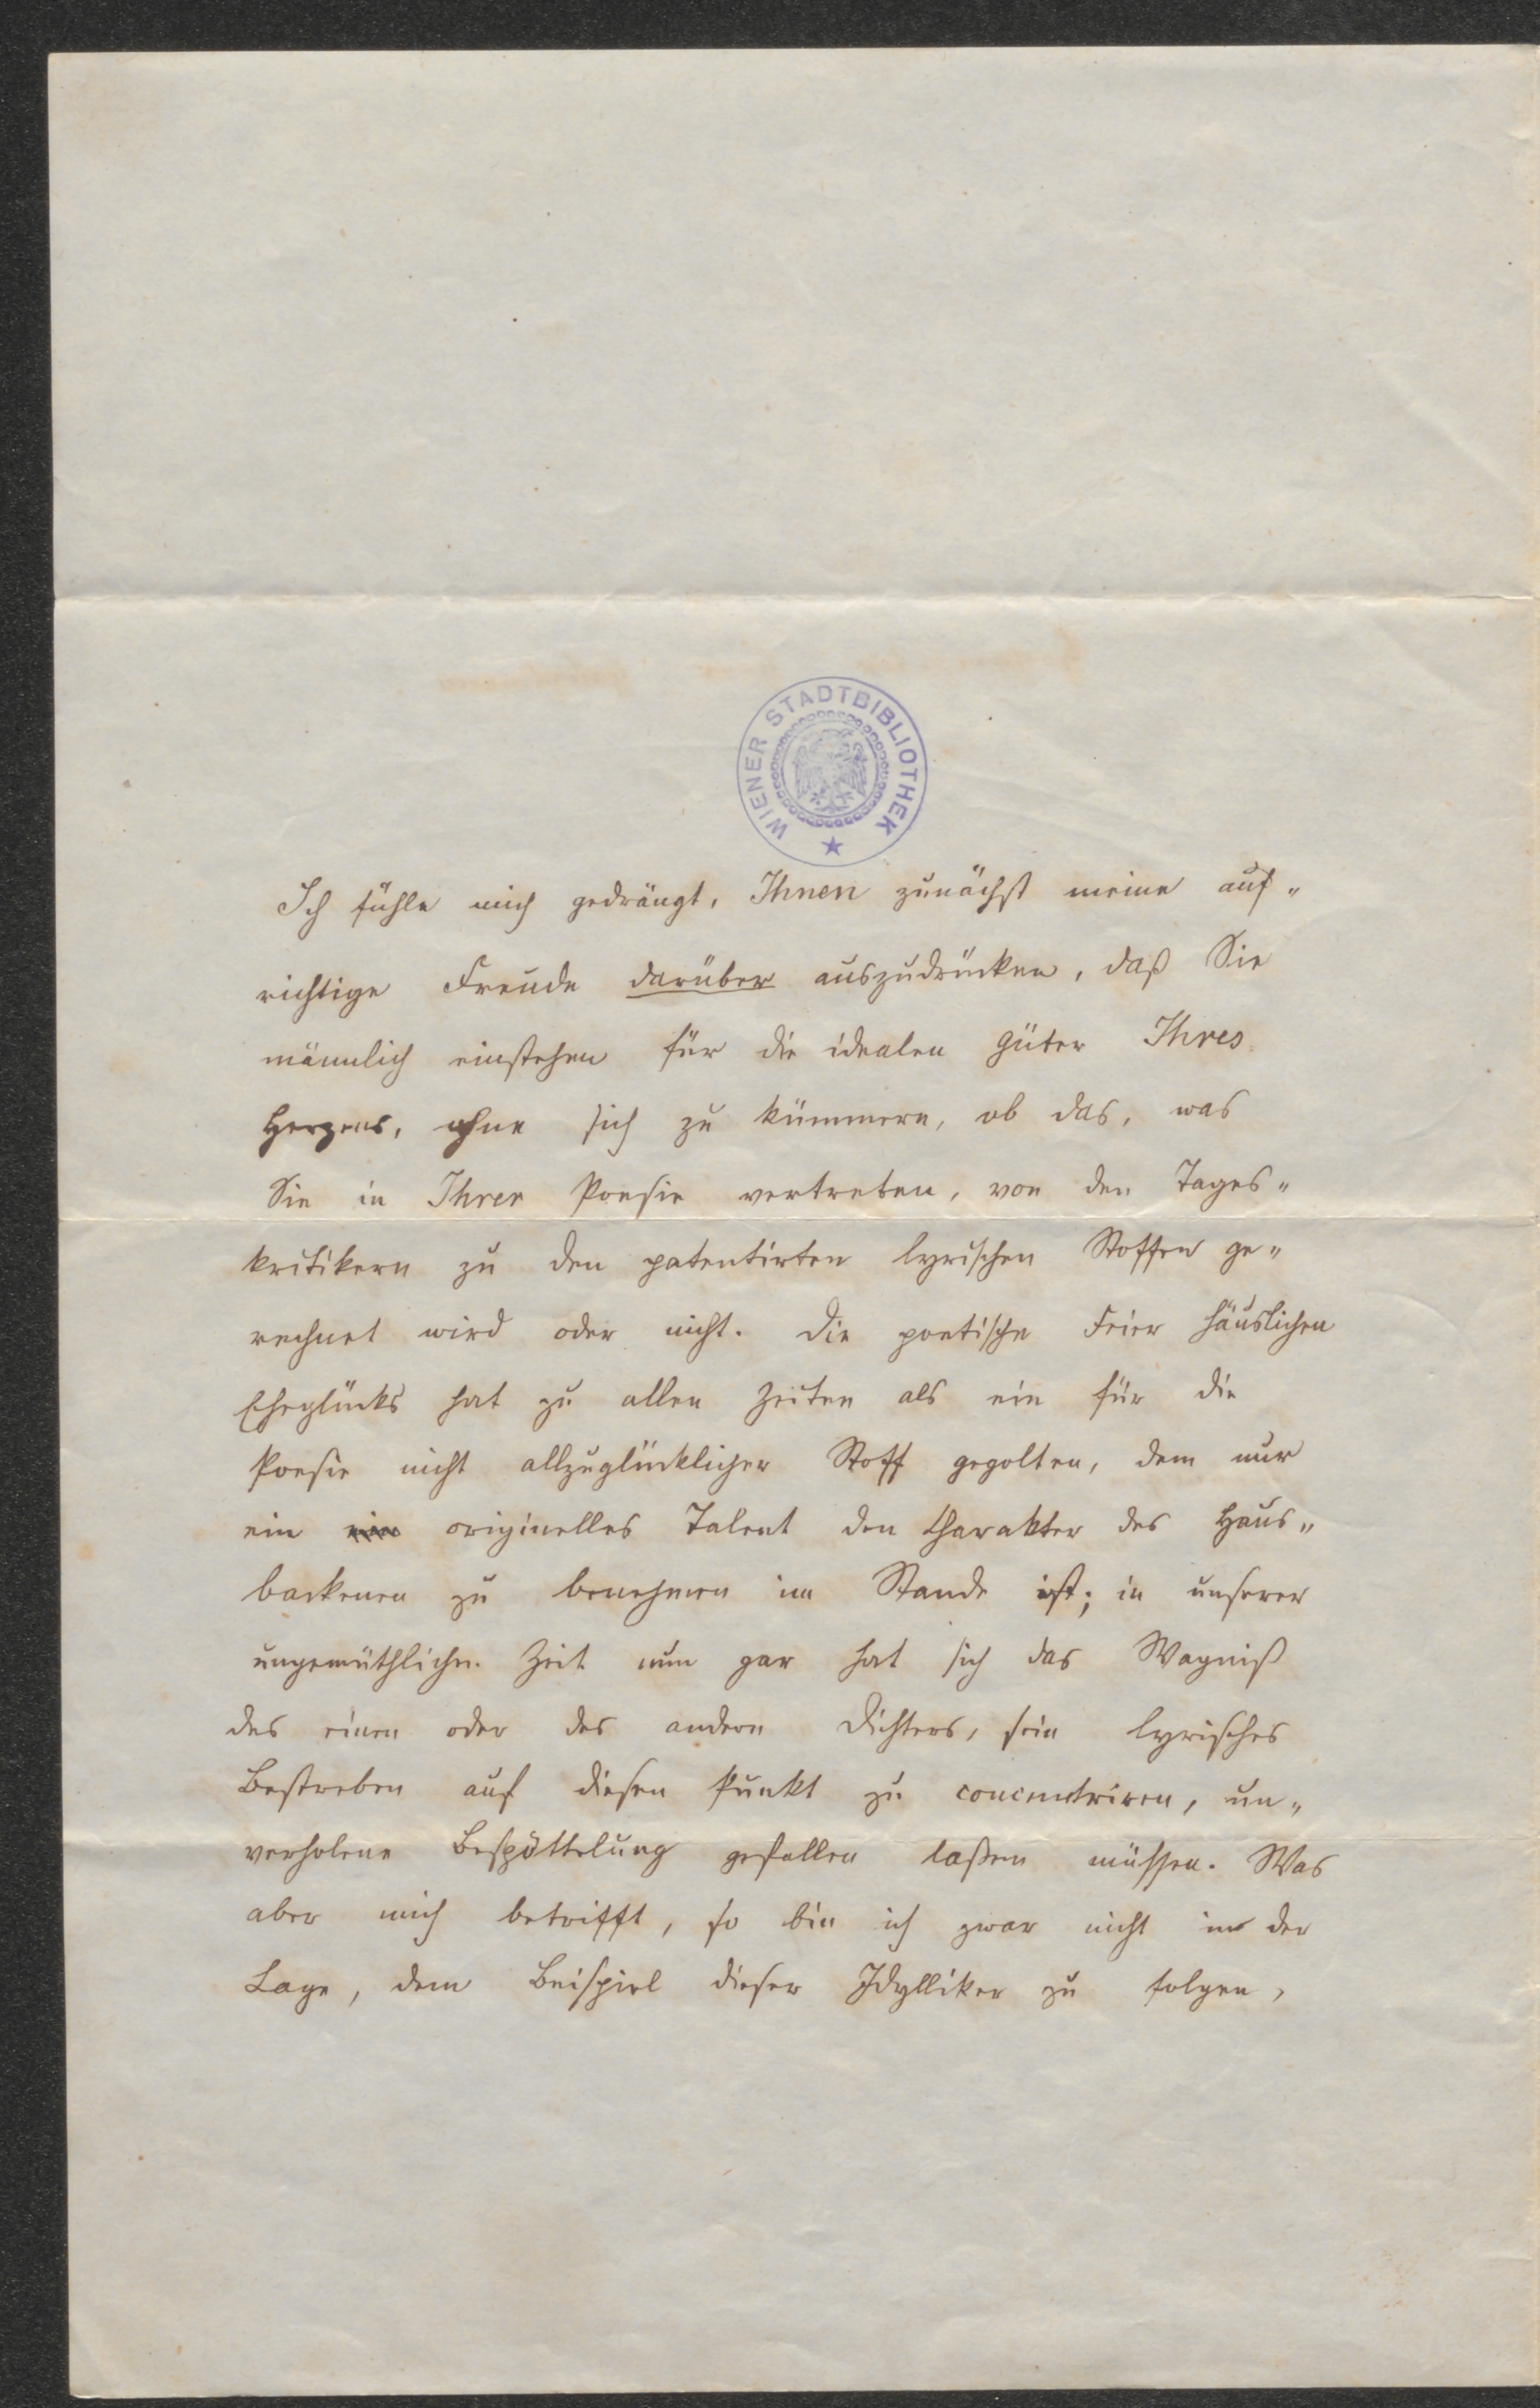 WIENER STADTBIBLIOTHEK
Ich fühle mich gedrängt, Ihnen zunächst meine auf„
richtige Freude darüber auszudrücken, daß Sie
männlich einstehen für die idealen Güter Ihres
Herzens, ohne sich zu kümmern, ob das, was
Sie in Ihrer Poesie vertreten, von den Tages„
kritikern zu den patentirten lyrischen Stoffen ge„
rechnet wird oder nicht. Die poetische Feier häuslichen
Eheglücks hat zu allen Zeiten als ein für die
Poesie nicht allzuglücklicher Stoff gegolten, dem nur
ein ein originelles Talent den Charakter des Haus„
backenen zu benehmen im Stande ist; in unserer
ungemüthlichen Zeit nun gar hat sich das Wagniß
des einen oder des andern Dichters, sein lyrisches
Bestreben auf diesen Punkt zu concentriren, un„
verholene Bespöttelung gefallen laßen müssen. Was
aber mich betrifft, so bin ich zwar nicht in der
Lage, dem Beispiel dieser Idylliker zu folgen,